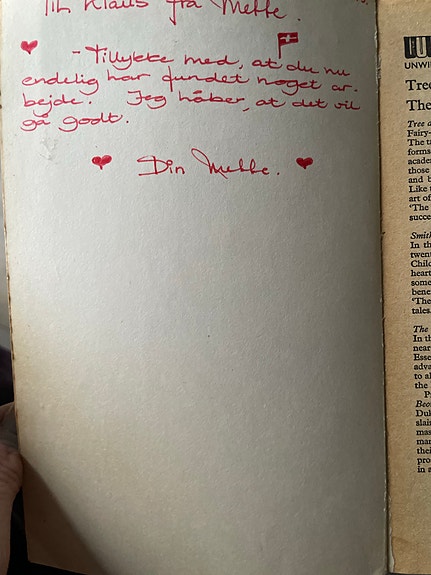 Til Klaus fra Mette.
- Tillykke med, at du nu
endelig har fundet noget ar-
bejde. Jeg håber, at det vil
gå godt.
Din Mette.
UU
UNWI
Tree
The
Tree a
Fairy-
The ta
forms
acade
those
and b
Like t
art of
'The
succe
Smith
In th
twent
Child
heart
some
bene
'The
tales.
The
In th
near
Esse
adva
to al
the
P
Beo
Dul
slais
mas
man
thei
pro
in a